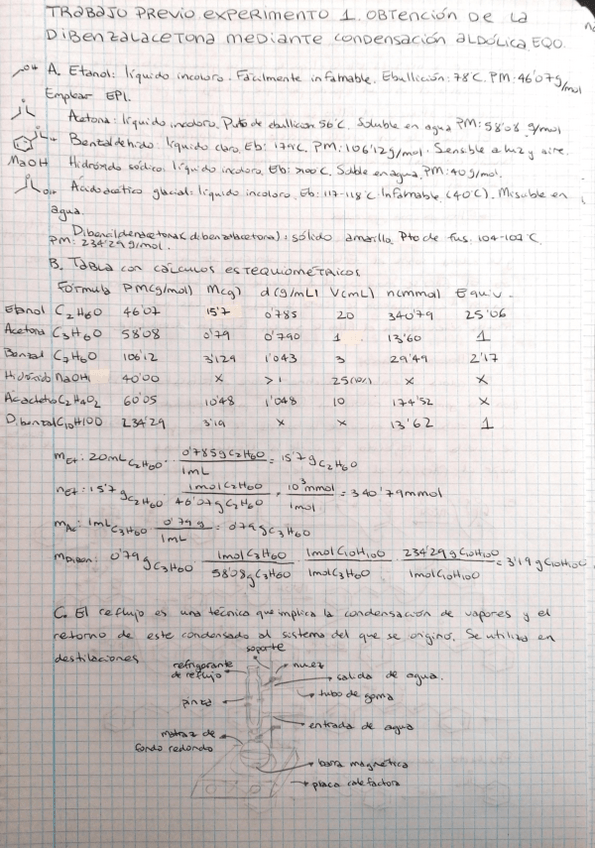 TRABAJO PREVIO EXPERIMENTO 1. OBTENCIÓN DE LA
DIBENZALACETONA MEDIANTE CONDENSACIÓN ALDÓLICA. EQO.
OH A. Etanol: líquido incoloro. Fácilmente inflamable. Ebullición: 78°C. PM: 46'07 g/mol
Emplear EPI.
Acetona: líquido incoloro. Punto de ebullición 56°C. Soluble en agua PM: 58'08 g/mol
Bentaldehído: líquido claro. Eb: 179°C. PM: 106'12 g/mol. Sensible a luz y aire.
NaOH Hidróxido sódico: líquido incoloro. Eb: >100°C. Soluble en agua. PM: 40 g/mol.
OH Ácido acético glacial: líquido incoloro. Eb: 117-118°C. Inflamable (40°C). Miscible en
agua.
(dibenzalacetona): sólido amarillo. Pto de fus. 104-107°C.
PM: 234'29 g/mol.
B. TABLA CON CÁLCULOS ESTEQUIOMÉTRICOS
Fórmula PM(g/mol) M(g) d(g/mL) V(mL) n(mmol) Equiv.
Etanol C2H6O 46'07 15'7 0'785 20 340'79 25'06
Acetona C3H6O 58'08 0'79 0'790 1 13'60 1
Benzal C7H6O 106'12 3'129 1'043 3 29'49 2'17
Hidróxido NaOH 40'00 x >1 25(10%) x x
Ac acético C2H4O2 60'05 10'48 1'048 10 174'52 x
Dibenzal C10H10O 234'29 3'19 x x 13'62 1
mEt: 20mL C2H6O · 0'785g C2H6O / 1mL = 15'7 g C2H6O
nET: 15'7 g C2H6O · 1mol C2H6O / 46'07g C2H6O · 10³ mmol / 1mol = 340'79 mmol
mAc: 1mL C3H6O · 0'79 g / 1mL = 0'79 g C3H6O
mDiben: 0'79 g C3H6O · 1mol C3H6O / 58'08g C3H6O · 1mol C10H10O / 1mol C3H6O · 234'29 g C10H10O / 1mol C10H10O = 3'19 g C10H10O
C. El reflujo es una técnica que implica la condensación de vapores y el
retorno de este condensado al sistema del que se originó. Se utiliza en
destilaciones
soporte
refrigerante de reflujo
nuez
salida de agua.
tubo de goma
pinza
entrada de agua
matraz de fondo redondo
barra magnética
placa calefactora